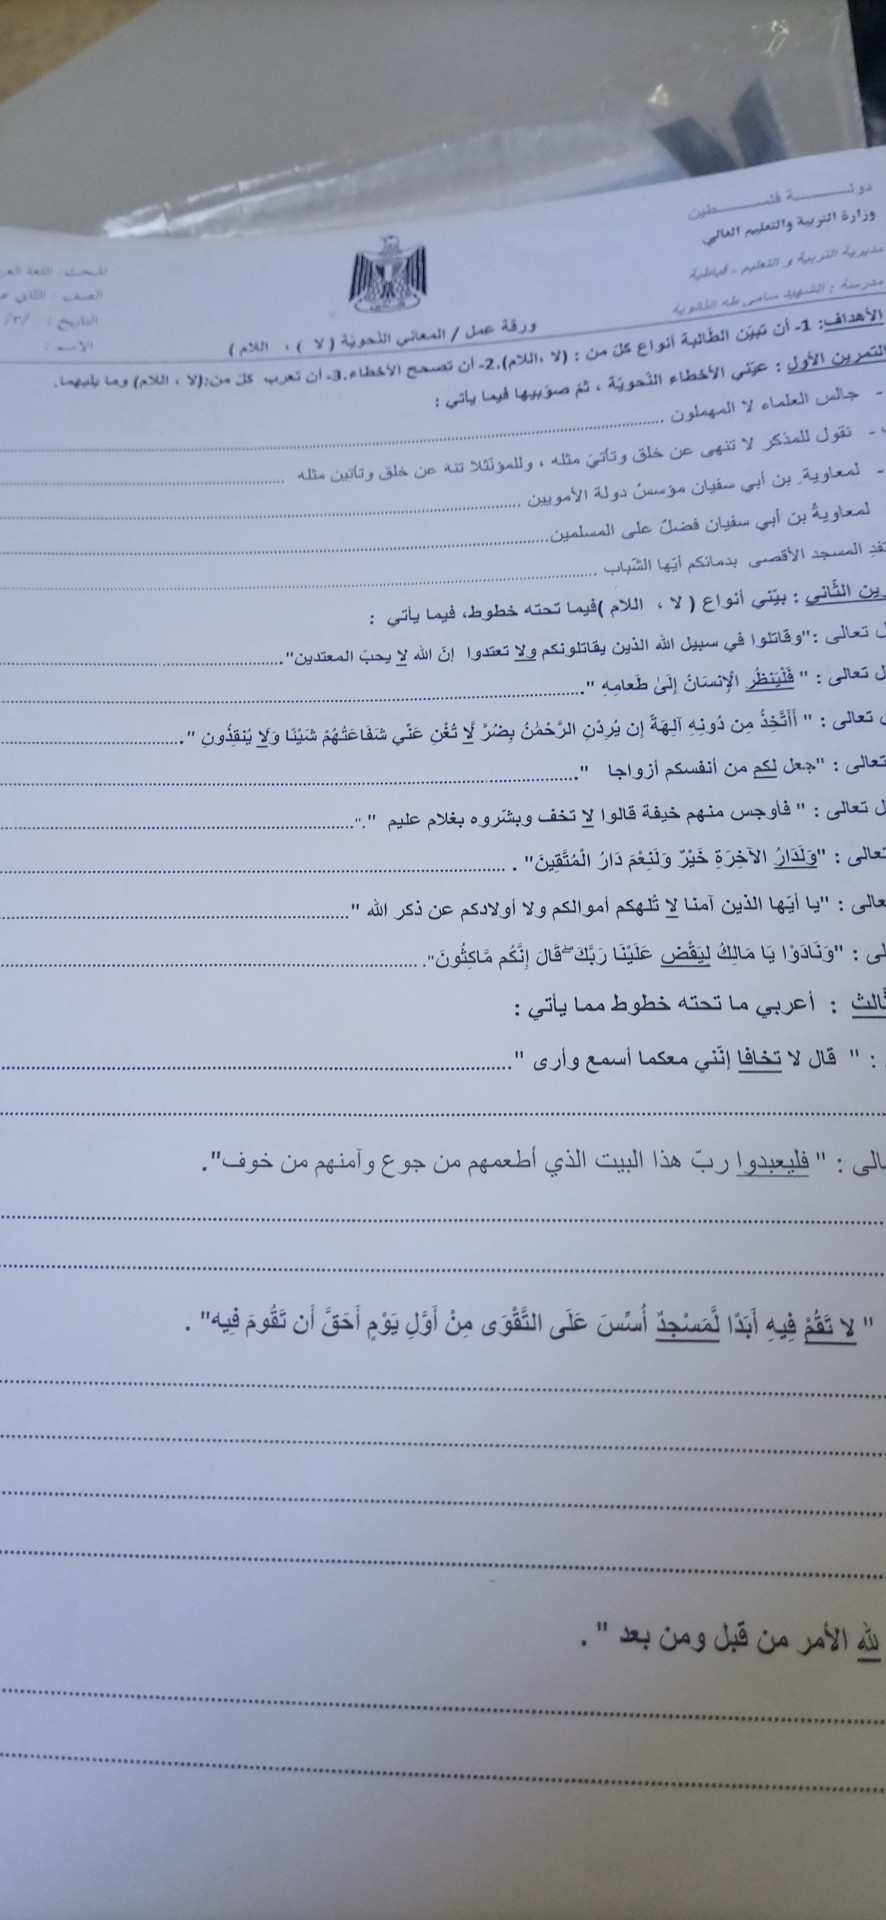 دولـــة فلســـطين
وزارة التربية والتعليم العالي
مديرية التربية و التعليم - قباطية
مدرسة : الشهيد سامي طه الثانوية
المبحث: اللغة
الصف : الثاني
التاريخ : /٣/
الاسم :
ورقة عمل / المعاني النّحويّة ( لا ) ، اللام )
الأهداف: 1- أن تبيّن الطّالبة أنواع كلّ من : (لا ،اللام).2- أن تصحح الأخطاء.3- أن تعرب كلّ من:(لا ، اللام) وما يليهما.
التمرين الأول : عيّني الأخطاء النّحويّة ، ثمّ صوّبيها فيما يأتي :
- جالس العلماء لا المهملون
- نقول للمذكر لا تنهى عن خلق وتأتيَ مثله ، وللمؤنّثلا تنة عن خلق وتأتين مثله
- لمعاوية ِ بن أبي سفيان مؤسسُ دولة الأمويين
لمعاويةُ بن أبي سفيان فضلٌ على المسلمين
المسجد الأقصى بدمائكم أيّها الشّباب
الثّاني : بيّني أنواع ( لا ، اللام )فيما تحته خطوط، فيما يأتي :
تعالى :"وقاتلوا في سبيل الله الذين يقاتلونكم ولا تعتدوا إنّ الله لا يحبّ المعتدين".
تعالى : " فَلْيَنظُرِ الْإِنسَانُ إِلَىٰ طَعَامِهِ ".
تعالى : " أَأَتَّخِذُ مِن دُونِهِ آلِهَةً إِن يُرِدْنِ الرَّحْمَٰنُ بِضُرٍّ لَّا تُغْنِ عَنِّي شَفَاعَتُهُمْ شَيْئًا وَلَا يُنقِذُونِ ".
تعالى : "جعل لكم من أنفسكم أزواجا ".
تعالى : " فأوجس منهم خيفة قالوا لا تخف وبشّروه بغلام عليم ".".
تعالى : "وَلَدَارُ الآخِرَةِ خَيْرٌ وَلَنِعْمَ دَارُ الْمُتَّقِينَ" .
"يا أيّها الذين آمنا لا تُلهكم أموالكم ولا أولادكم عن ذكر الله ".
: "وَنَادَوْا يَا مَالِكُ لِيَقْضِ عَلَيْنَا رَبُّكَ ۖ قَالَ إِنَّكُم مَّاكِثُونَ".
: أعربي ما تحته خطوط مما يأتي :
: " قال لا تخافا إنّني معكما أسمع وأرى ".
: " فليعبدوا ربّ هذا البيت الذي أطعمهم من جوع وآمنهم من خوف".
" لا تَقُمْ فِيهِ أَبَدًا لَّمَسْجِدٌ أُسِّسَ عَلَى التَّقْوَى مِنْ أَوَّلِ يَوْمٍ أَحَقُّ أَن تَقُومَ فِيه" .
لله الأمر من قبل ومن بعد " .